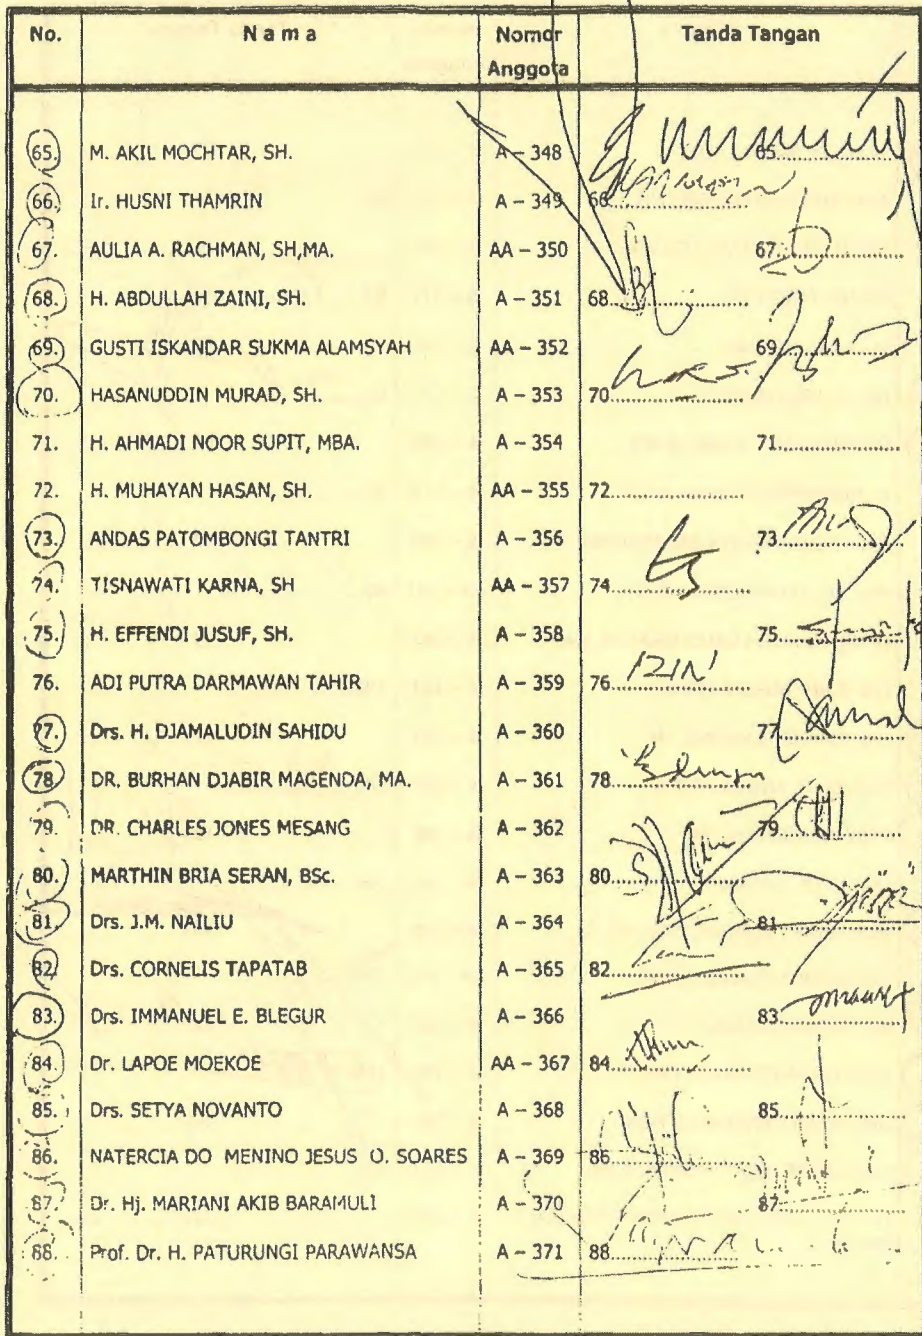 No. Nama Nomor Anggota Tanda Tangan
65. M. AKIL MOCHTAR, SH. A – 348 65
66. Ir. HUSNI THAMRIN A – 349 66
67. AULIA A. RACHMAN, SH,MA. AA – 350 67
68. H. ABDULLAH ZAINI, SH. A – 351 68
69. GUSTI ISKANDAR SUKMA ALAMSYAH AA – 352 69
70. HASANUDDIN MURAD, SH. A – 353 70
71. H. AHMADI NOOR SUPIT, MBA. A – 354 71
72. H. MUHAYAN HASAN, SH. AA – 355 72
73. ANDAS PATOMBONGI TANTRI A – 356 73
74. TISNAWATI KARNA, SH AA – 357 74
75. H. EFFENDI JUSUF, SH. A – 358 75
76. ADI PUTRA DARMAWAN TAHIR A – 359 76 IZIN
77. Drs. H. DJAMALUDIN SAHIDU A – 360 77
78 DR. BURHAN DJABIR MAGENDA, MA. A – 361 78
79. DR. CHARLES JONES MESANG A – 362 79
80. MARTHIN BRIA SERAN, BSc. A – 363 80
81. Drs. J.M. NAILIU A – 364 81
82. Drs. CORNELIS TAPATAB A – 365 82
83. Drs. IMMANUEL E. BLEGUR A – 366 83
84. Dr. LAPOE MOEKOE AA – 367 84
85. Drs. SETYA NOVANTO A – 368 85
86. NATERCIA DO MENINO JESUS O. SOARES A – 369 86
87. Dr. Hj. MARIANI AKIB BARAMULI A – 370 87
88. Prof. Dr. H. PATURUNGI PARAWANSA A – 371 88